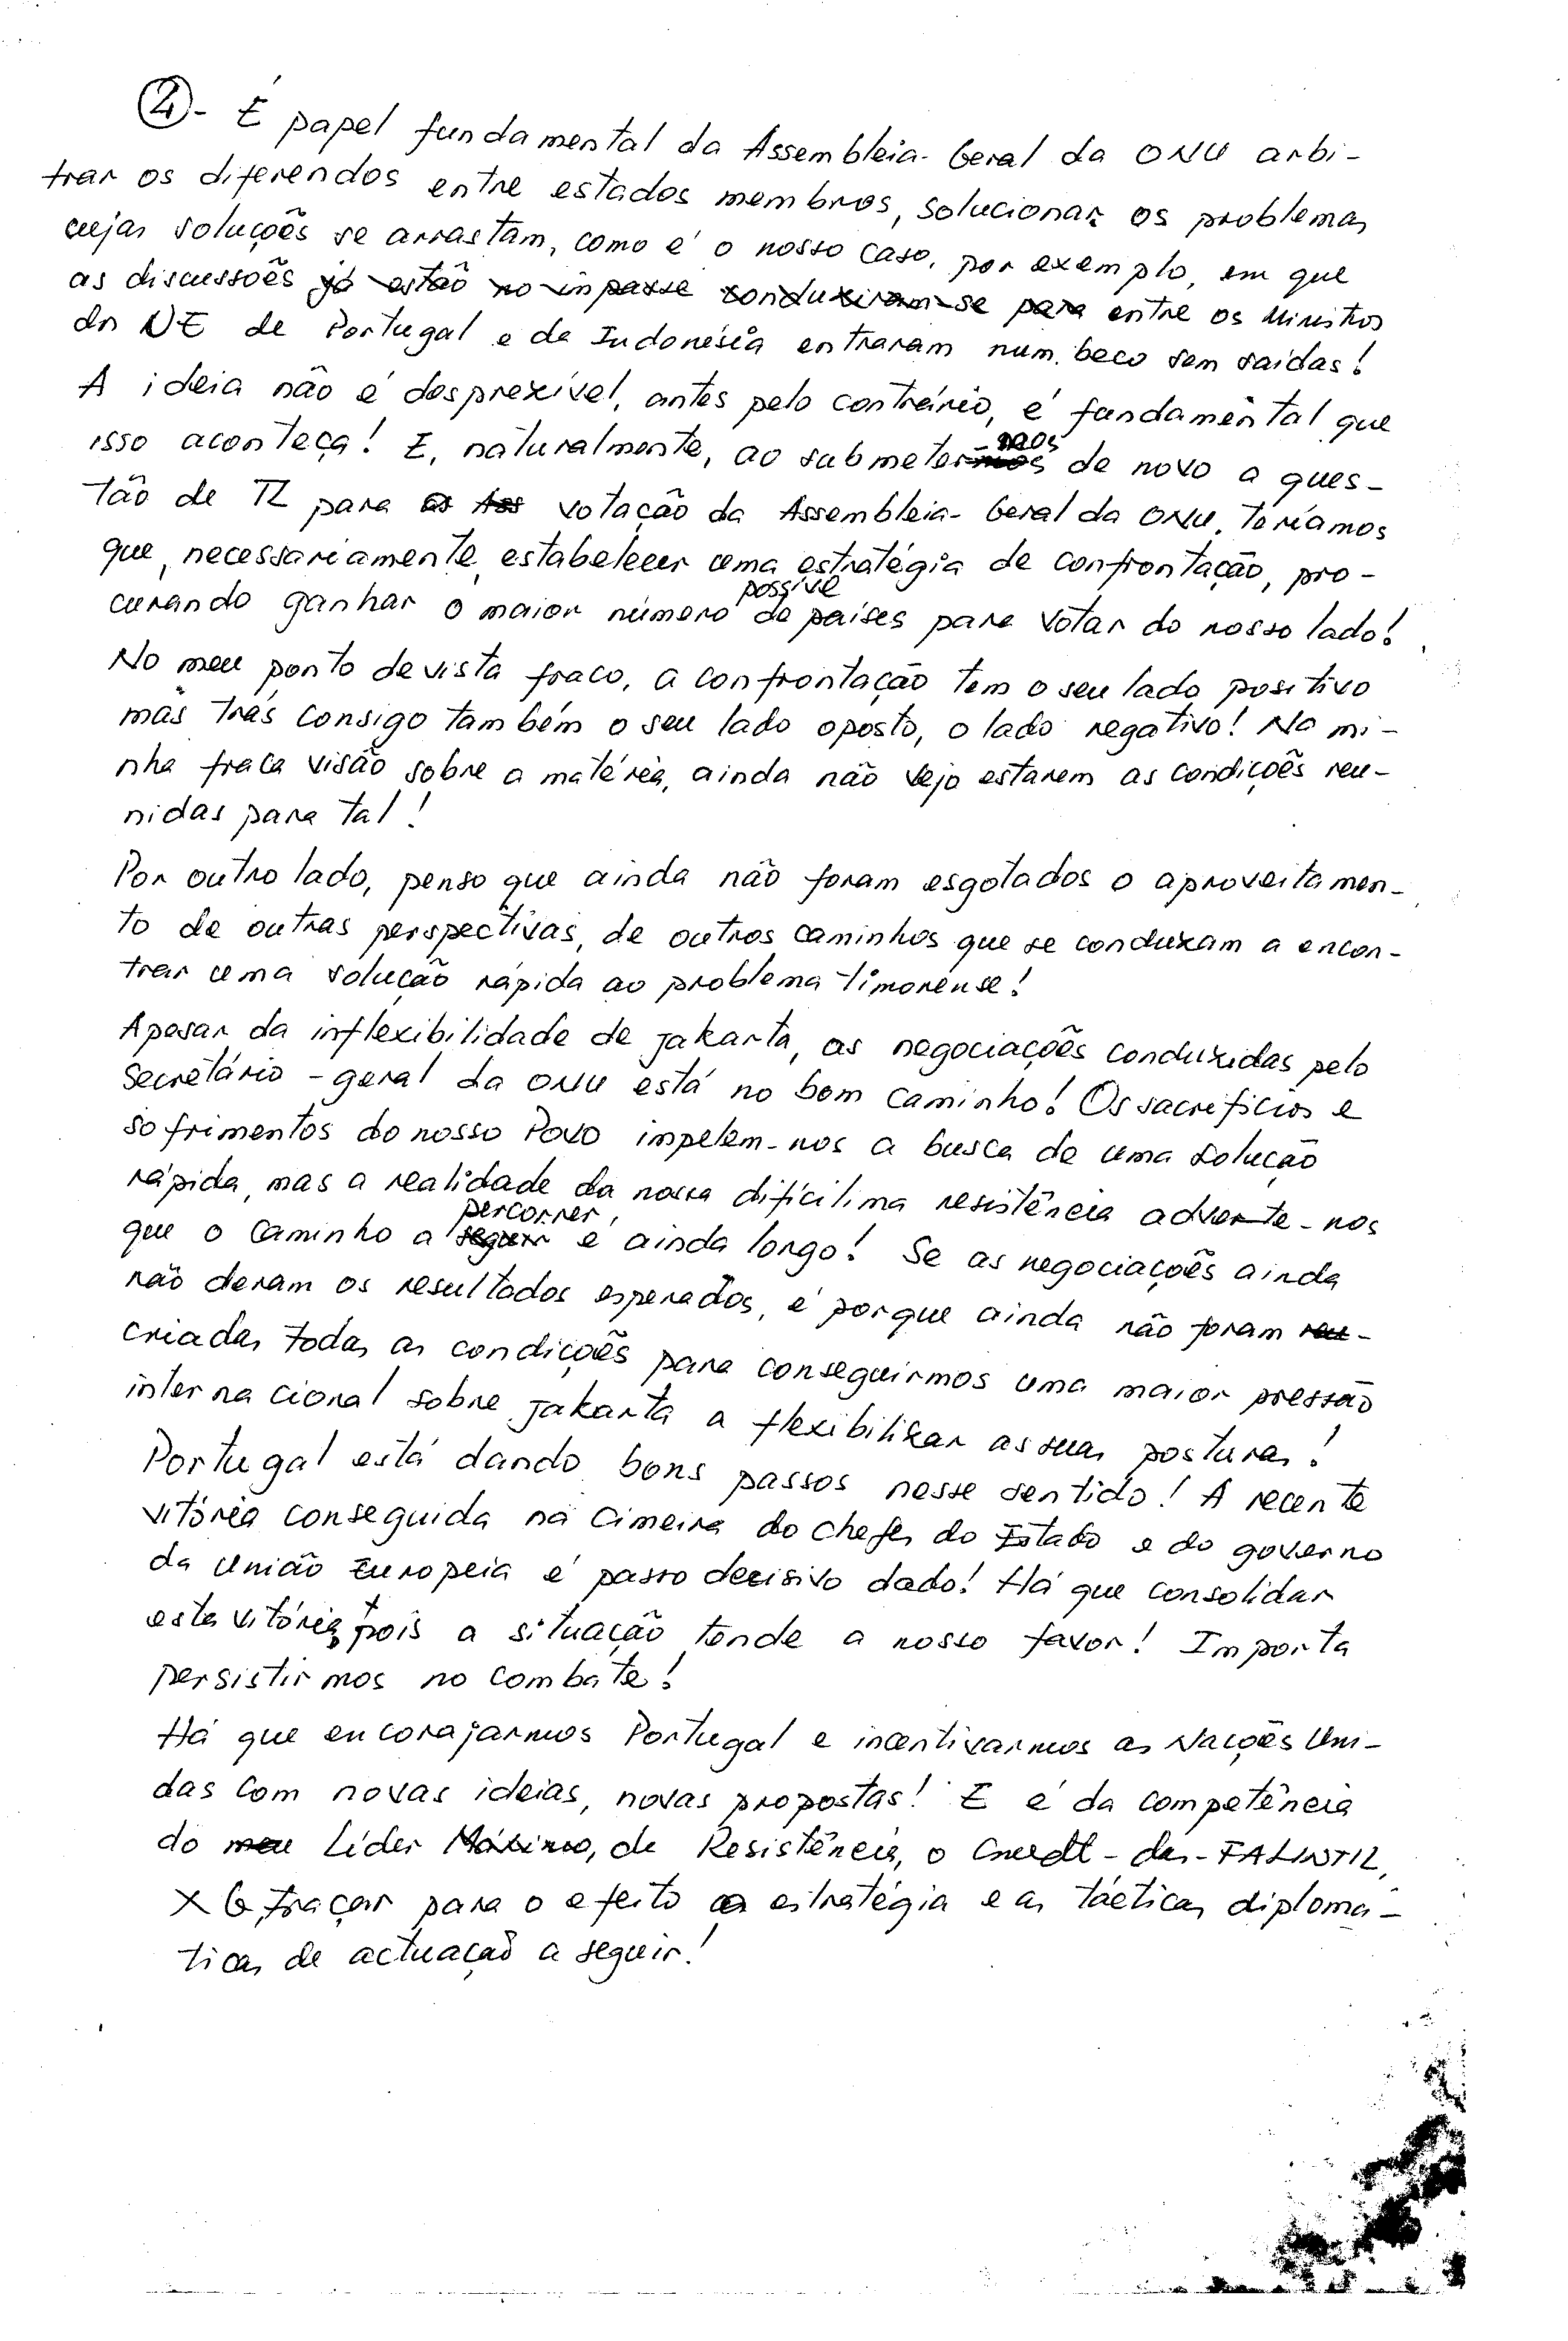 ②- É papel fundamental da Assembleia-Geral da ONU arbi-
trar os diferendos entre estados membros, solucionar os problemas
cujas soluções se arrastam, como é o nosso caso, por exemplo, em que
as discussões já estão no impasse conduziram-se para entre os Ministros
dos NE de Portugal e da Indonésia entraram num beco sem saídas!
A ideia não é desprezível, antes pelo contrário, é fundamental que
isso aconteça! E, naturalmente, ao submetermos de novo a ques-
tão de TL para votação da Assembleia-Geral da ONU, teríamos
que, necessariamente, estabelecer uma estratégia de confrontação, pro-
curando ganhar o maior número possíve de países para votar do nosso lado!
No meu ponto de vista fraco, a confrontação tem o seu lado positivo
mas trás consigo também o seu lado oposto, o lado negativo! Na mi-
nha fraca visão sobre a matéria, ainda não vejo estarem as condições reu-
nidas para tal!
Por outro lado, penso que ainda não foram esgotados o aproveitamen-
to de outras perspectivas, de outros caminhos que se conduzam a encon-
trar uma solução rápida ao problema timorense!
Apesar da inflexibilidade de Jakarta, as negociações conduzidas pelo
Secretário-geral da ONU está no bom caminho! Os sacrifícios e
sofrimentos do nosso Povo impelem-nos a busca de uma solução
rápida, mas a realidade da nossa dificílima resistência adverte-nos
que o caminho a seguir percorrer, é ainda longo! Se as negociações ainda
não deram os resultados esperados, é porque ainda não foram reu-
criadas todas as condições para conseguirmos uma maior pressão
internacional sobre Jakarta a flexibilizar as suas posturas!
Portugal está dando bons passos nesse sentido! A recente
vitória conseguida na Cimeira do Chefes do Estado e do governo
da União Europeia é passo decisivo dado! Há que consolidar
esta vitória, pois a situação tende a nosso favor! Importa
persistirmos no combate!
Há que encorajarmos Portugal e incentivarmos as Nações Uni-
das com novas ideias, novas propostas! E é da competência
do meu Líder Máximo, da Resistência, o Cmdt-das-FALINTIL,
XG, traçar para o efeito a estratégia e as tácticas diplomá-
ticas de actuação a seguir!